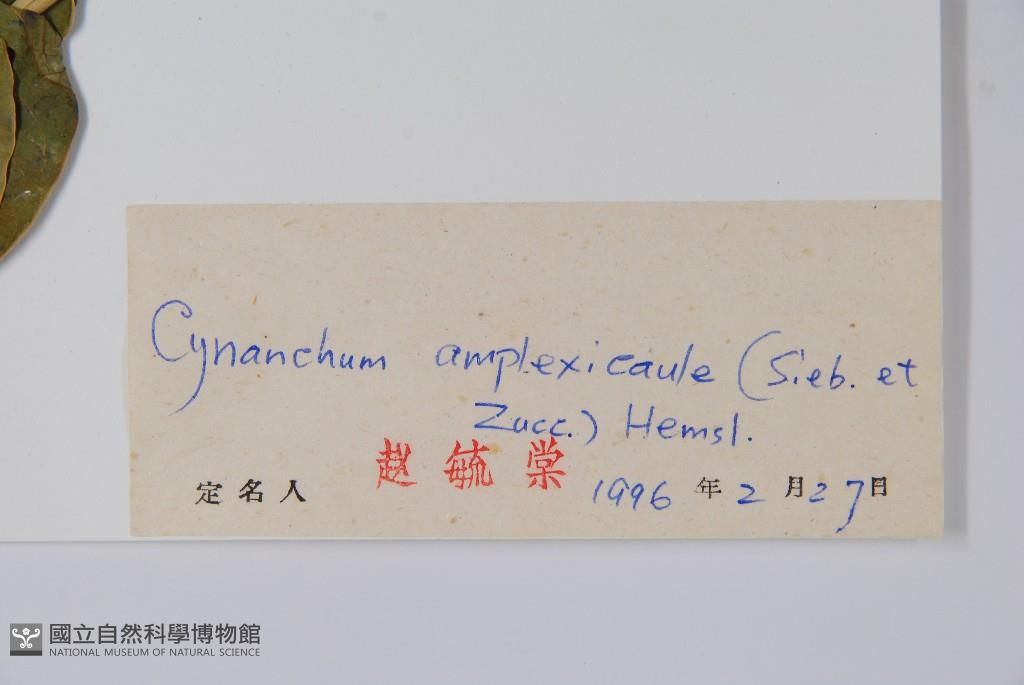 Cynanchum amplexicaule (Sieb. et
Zucc.) Hemsl.
定名人 赵毓棠 1996年2月27日
國立自然科學博物館
NATIONAL MUSEUM OF NATURAL SCIENCE